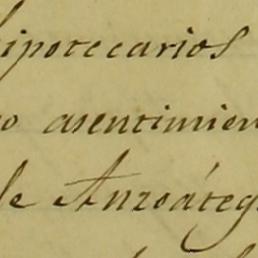 hipotecarios
o asentimien
de Anzoáteg